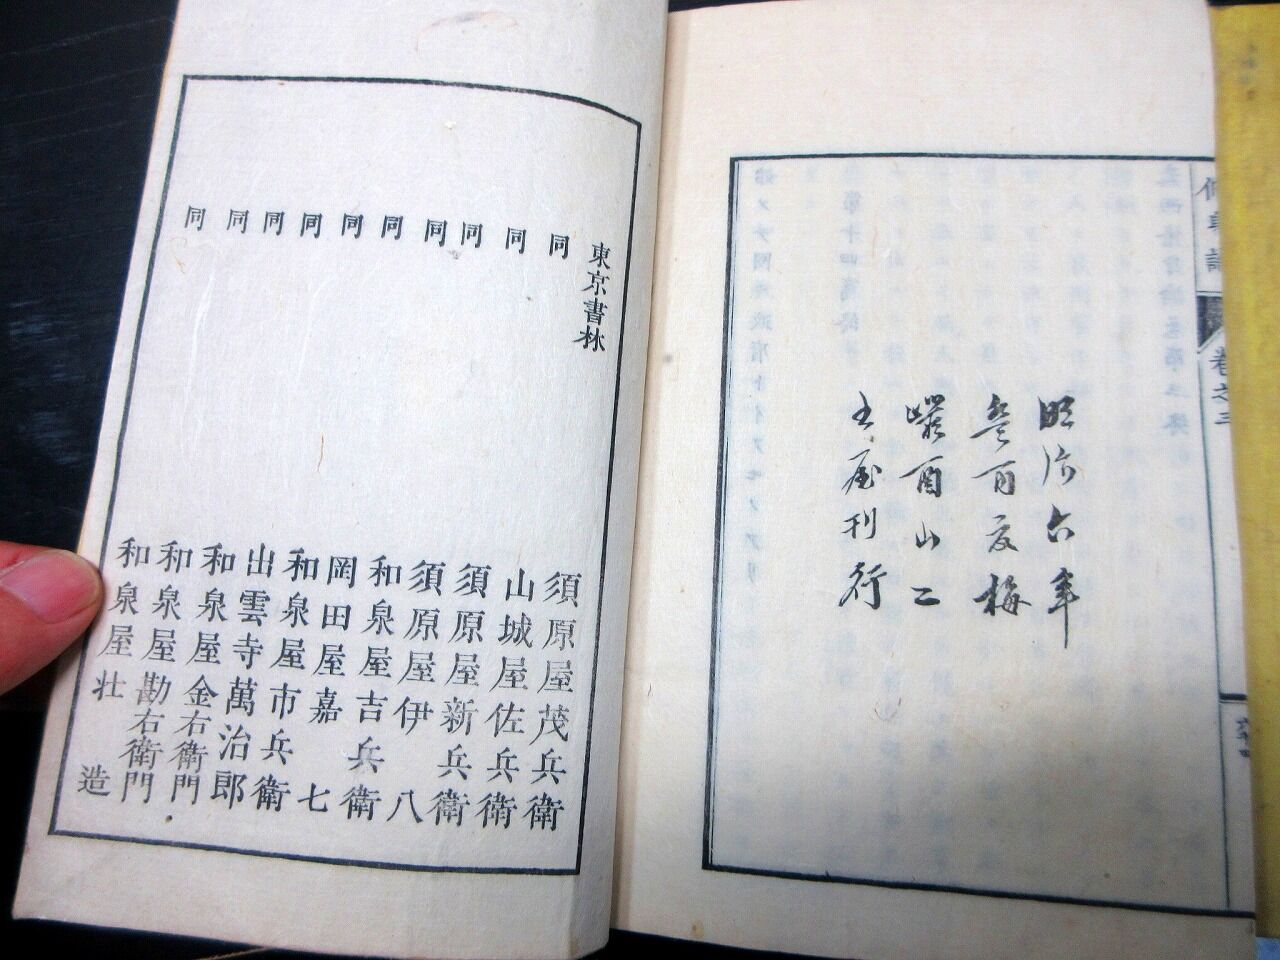 卷之三
明治六年
癸酉夏梅
巖酉山二
書屋刊行
東京書林
同 須原屋茂兵衛
同 山城屋佐兵衛
同 須原屋新兵衛
同 須原屋伊八
同 和泉屋吉兵衛
同 岡田屋嘉七
同 和泉屋市兵衛
同 出雲寺萬治郎
同 和泉屋金右衛門
同 和泉屋勘右衛門
和泉屋壮造